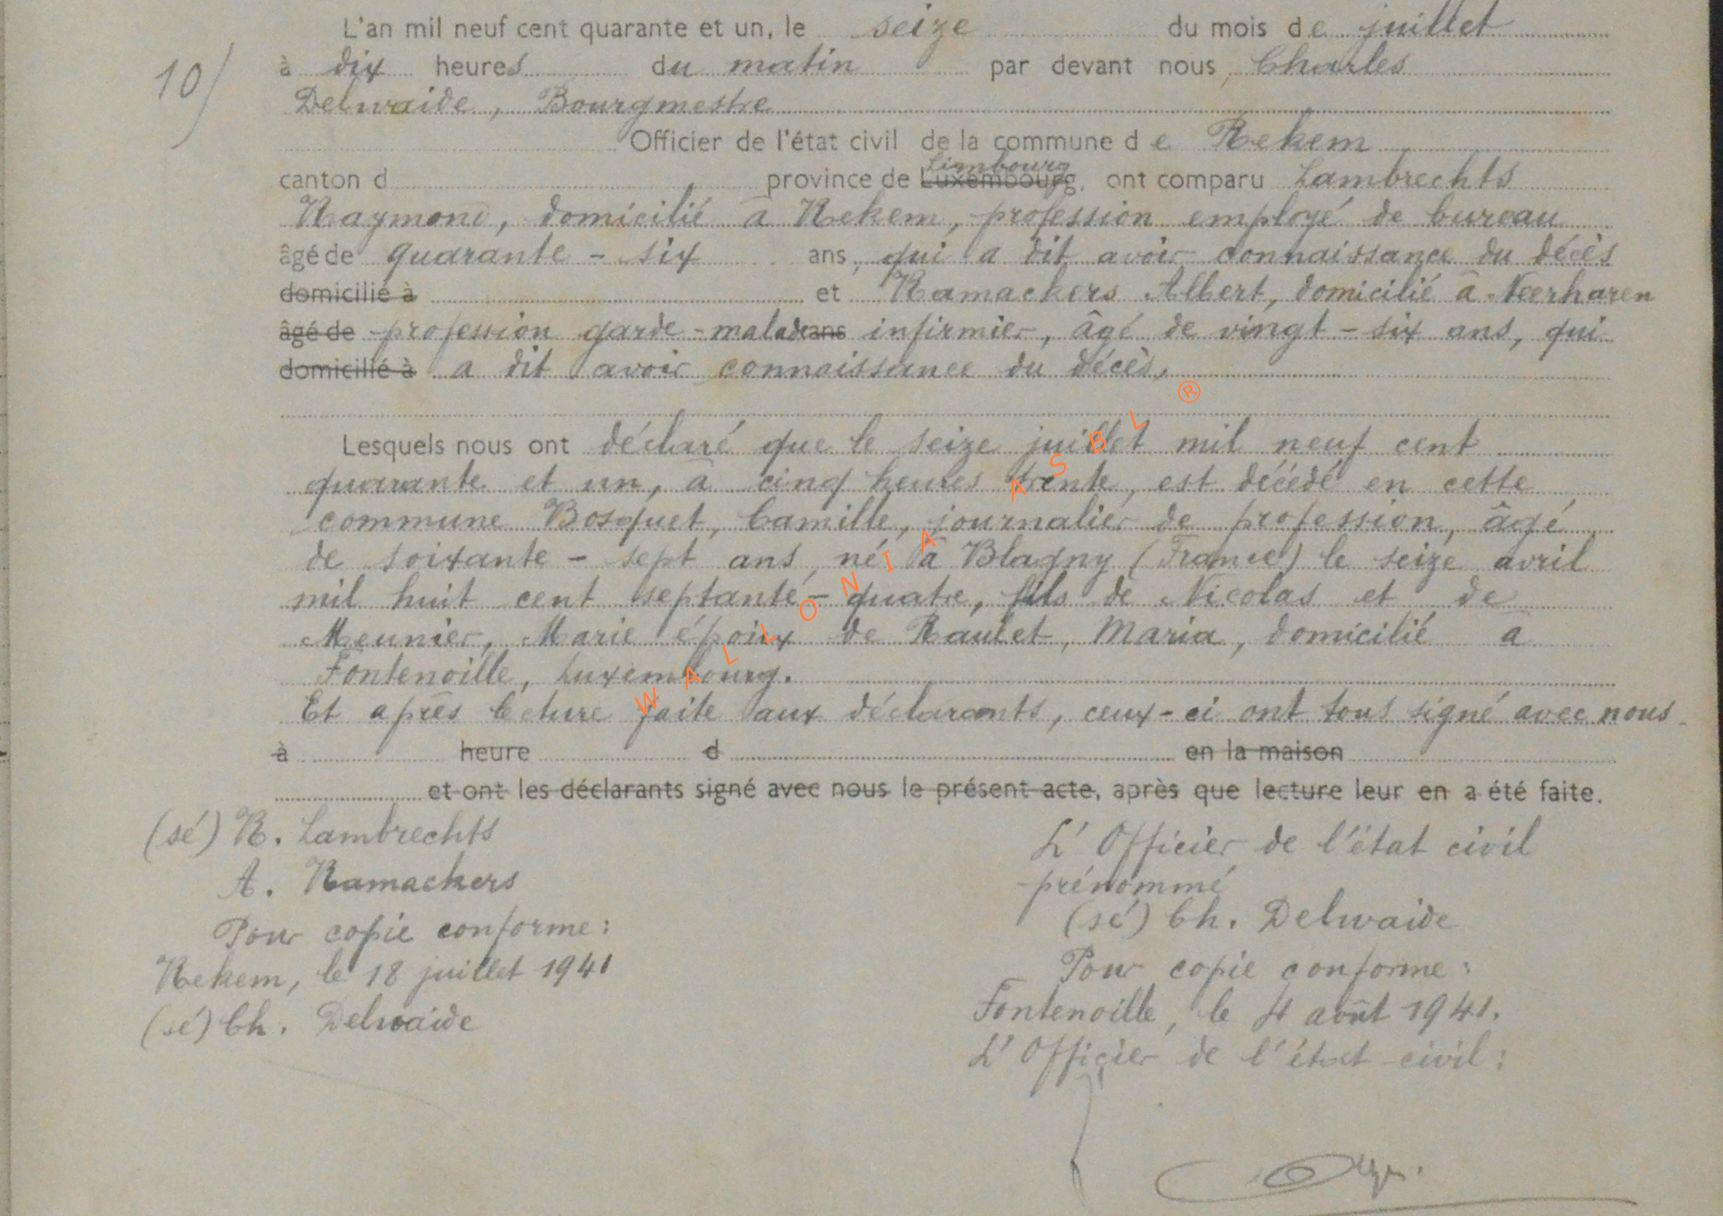 L'an mil neuf cent quarante et un, le seize du mois de juillet
10/ à dix heures du matin par devant nous, Charles
Delwaide, Bourgmestre
Officier de l'état civil de la commune de Rekem
Limbourg
canton d province de Luxembourg, ont comparu Lambrechts
Raymond, domicilié à Rekem, profession employé de bureau
âgé de quarante - six ans, qui a dit avoir connaissance du décès
domicilié à et Ramackers Albert, domicilié à Neerharen
âgé de profession garde-malade ans infirmier, âgé de vingt-six ans, qui
domicilié à a dit avoir connaissance du décès.
Lesquels nous ont déclaré que le seize juillet mil neuf cent
quarante et un, à cinq heures trente, est décédé en cette
commune Bosquet, Camille, journalier de profession, âgé
de soixante - sept ans, né à Blagny (France) le seize avril
mil huit cent septante-quatre, fils de Nicolas et de
Meunier, Marie époux de Raulet, Maria, domicilié à
Fontenoille, Luxembourg.
Et après lecture faite aux déclarants, ceux-ci ont tous signé avec nous.
à heure d en la maison
et ont les déclarants signé avec nous le présent acte, après que lecture leur en a été faite.
(sé) R. Lambrechts
A. Ramackers
Pour copie conforme :
Rekem, le 18 juillet 1941
(sé) Ch. Delwaide
L'Officier de l'état civil
prénommé
(sé) Ch. Delwaide
Pour copie conforme :
Fontenoille, le 4 août 1941.
L'Officier de l'état civil :
WALLONIA ASBL ®